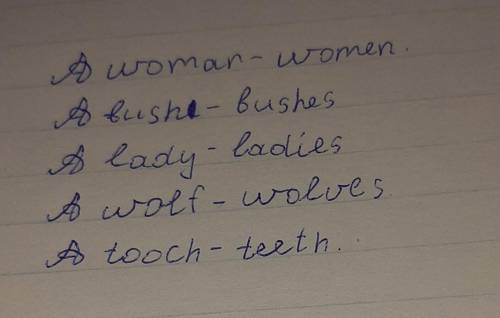 A woman - women.
A bush - bushes
A lady - ladies
A wolf - wolves.
A tooch - teeth.